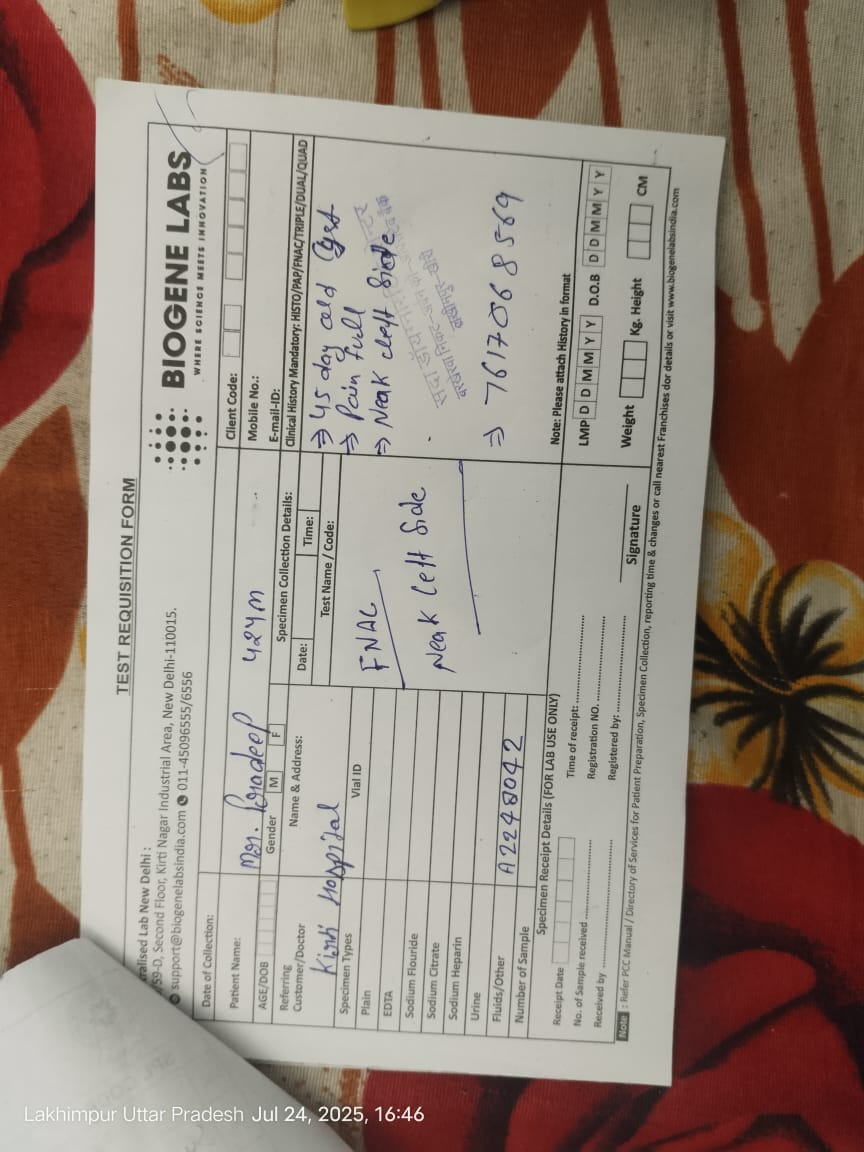 TEST REQUISITION FORM
ralised Lab New Delhi :
/59-D, Second Floor, Kirti Nagar Industrial Area, New Delhi-110015.
support@biogenelabsindia.com 011-45096555/6556
BIOGENE LABS
WHERE SCIENCE MEETS INNOVATION
Date of Collection:
Client Code:
Patient Name: Mr. Pradeep 42YM
Mobile No.:
AGE/DOB Gender M F
E-mail-ID:
Referring Customer/Doctor
Name & Address:
Hospital
Specimen Collection Details:
Date: Time:
Test Name / Code:
Clinical History Mandatory: HISTO/PAP/FNAC/TRIPLE/DUAL/QUAD
⇒ 45 day old Cyst
⇒ Pain full
⇒ Neak cleft Side
⇒ 7617068569
Specimen Types Vial ID
Plain
EDTA
Sodium Flouride
Sodium Citrate
Sodium Heparin
Urine
Fluids/Other A2248042
Number of Sample
FNAC
Neak Left Side
Specimen Receipt Details (FOR LAB USE ONLY)
Receipt Date
Time of receipt:
No. of Sample received
Registration NO.
Received by
Registered by:
Signature
Note: Please attach History in format
LMP D D M M Y Y D.O.B D D M M Y Y
Weight Kg. Height CM
Note : Refer PCC Manual / Directory of Services for Patient Preparation, Specimen Collection, reporting time & changes or call nearest Franchises dor details or visit www.biogenelabsindia.com
Lakhimpur Uttar Pradesh Jul 24, 2025, 16:46